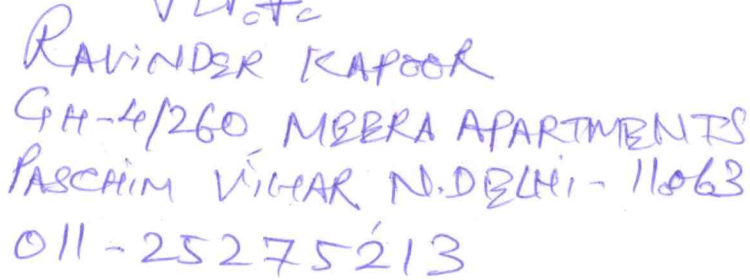 RAVINDER KAPOOR
GH-4/260 MEERA APARTMENTS
PASCHIM VIHAR N.DELHI-110063
011-25275213